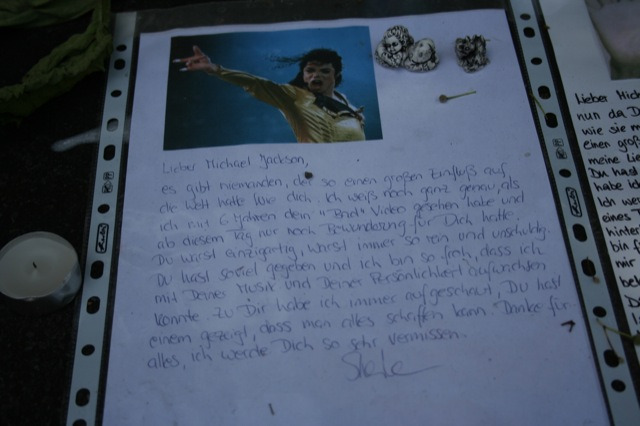 Lieber Michael Jackson,
es gibt niemanden, der so einen großen Einfluß auf
die Welt hatte wie dich. Ich weiß noch ganz genau, als
ich mit 6 Jahren dein "Bad" Video gesehen habe und
ab diesem Tag nur noch Bewunderung für Dich hatte.
Du warst einzigartig, warst immer so rein und unschuldig.
Du hast soviel gegeben und ich bin so froh, dass ich
mit Deiner Musik und Deiner Persönlichkeit aufwachsen
konnte. Zu Dir habe ich immer aufgeschaut. Du hast
einem gezeigt, dass man alles schaffen kann. Danke für
alles, ich werde Dich so sehr vermissen.
Lieber Mich
nun da D
wie sie m
einen groß
meine Li
Du hast
habe
Ich wer
eines
hinter
bin
mir
be